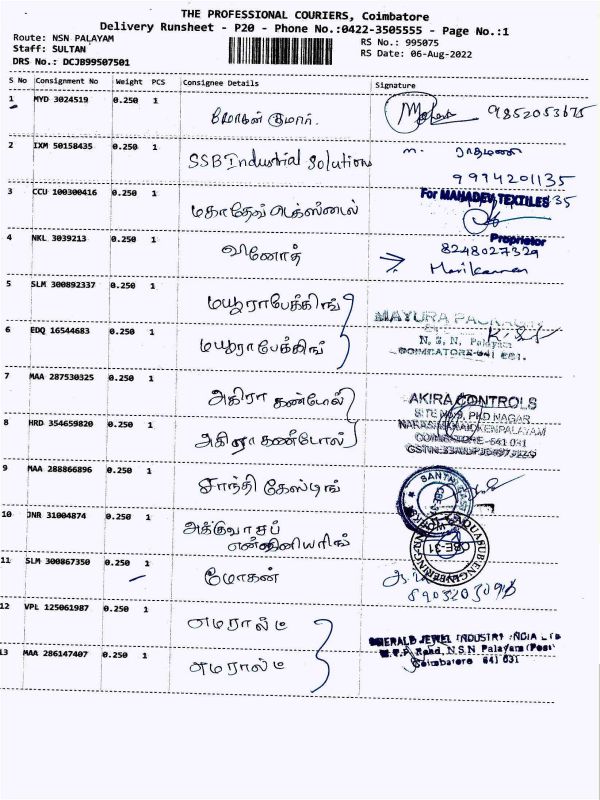 THE PROFESSIONAL COURIERS, Coimbatore
Delivery Runsheet - P20 - Phone No.:0422-3505555 - Page No.:1
Route: NSN PALAYAM
RS No.: 995075
Staff: SULTAN
RS Date: 06-Aug-2022
DRS No.: DCJB99507501
S No Consignment No Weight PCS Consignee Details Signature
1 MYD 3024519 0.250 1 மோகன் குமார். 9852053675
2 IXM 50158435 0.250 1 SSB Industrial Solutions
9994201135
3 CCU 100300416 0.250 1 மகாதேவ் டெக்ஸ்டைல் For MAHADEV TEXTILES
Proprietor
4 NKL 3039213 0.250 1 வினோத் 8248027329
5 SLM 300892337 0.250 1 மயூரா பேக்கிங் MAYURA
N. S. N. Palayam
COIMBATORE-641 031.
6 EDQ 16544683 0.250 1 மயூரா பேக்கிங்
7 MAA 287530325 0.250 1 அகிரா கண்ட்ரோல் AKIRA CONTROLS
8 HRD 354659820 0.250 1 அகிரா கண்ட்ரோல் COIMBATORE-641 031
9 MAA 288866896 0.250 1 சாந்தி கேஸ்டிங்
10 JNR 31004874 0.250 1 அக்குவா சப்
என்ஜினியரிங்
11 SLM 300867350 0.250 1 மோகன்
12 VPL 125061987 0.250 1 எமரால்டு EMERALD JEWEL INDUSTRY INDIA LTD
Road, N.S.N Palayam (Post)
Coimbatore 641 031
13 MAA 286147407 0.250 1 எமரால்டு